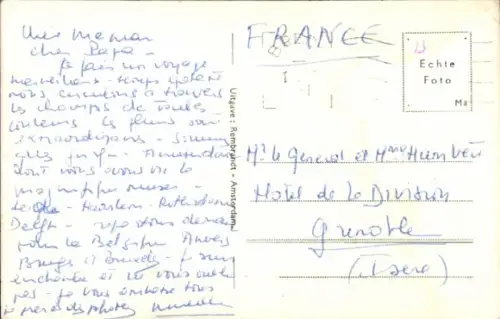 Chère Maman
cher Papa -
Je fais un voyage
merveilleux - temps splendide
nous circulons à travers
les champs de toutes
couleurs les fleurs sont
extraordinaires -
allés jusqu'à Amsterdam
dont nous avons vu le
magnifique musée -
Haarlem - Rotterdam
Delft - repartons demain
pour la Belgique Anvers
Bruges et Bruxelles - je suis
enchantée et ne vous oublie
pas - je vous embrasse tous
je prends des photos
Uitgave: Rembrandt - Amsterdam
FRANCE
Echte
Foto
Mr le General et Mme Humbert
Hotel de la Division
Grenoble
(Isere)